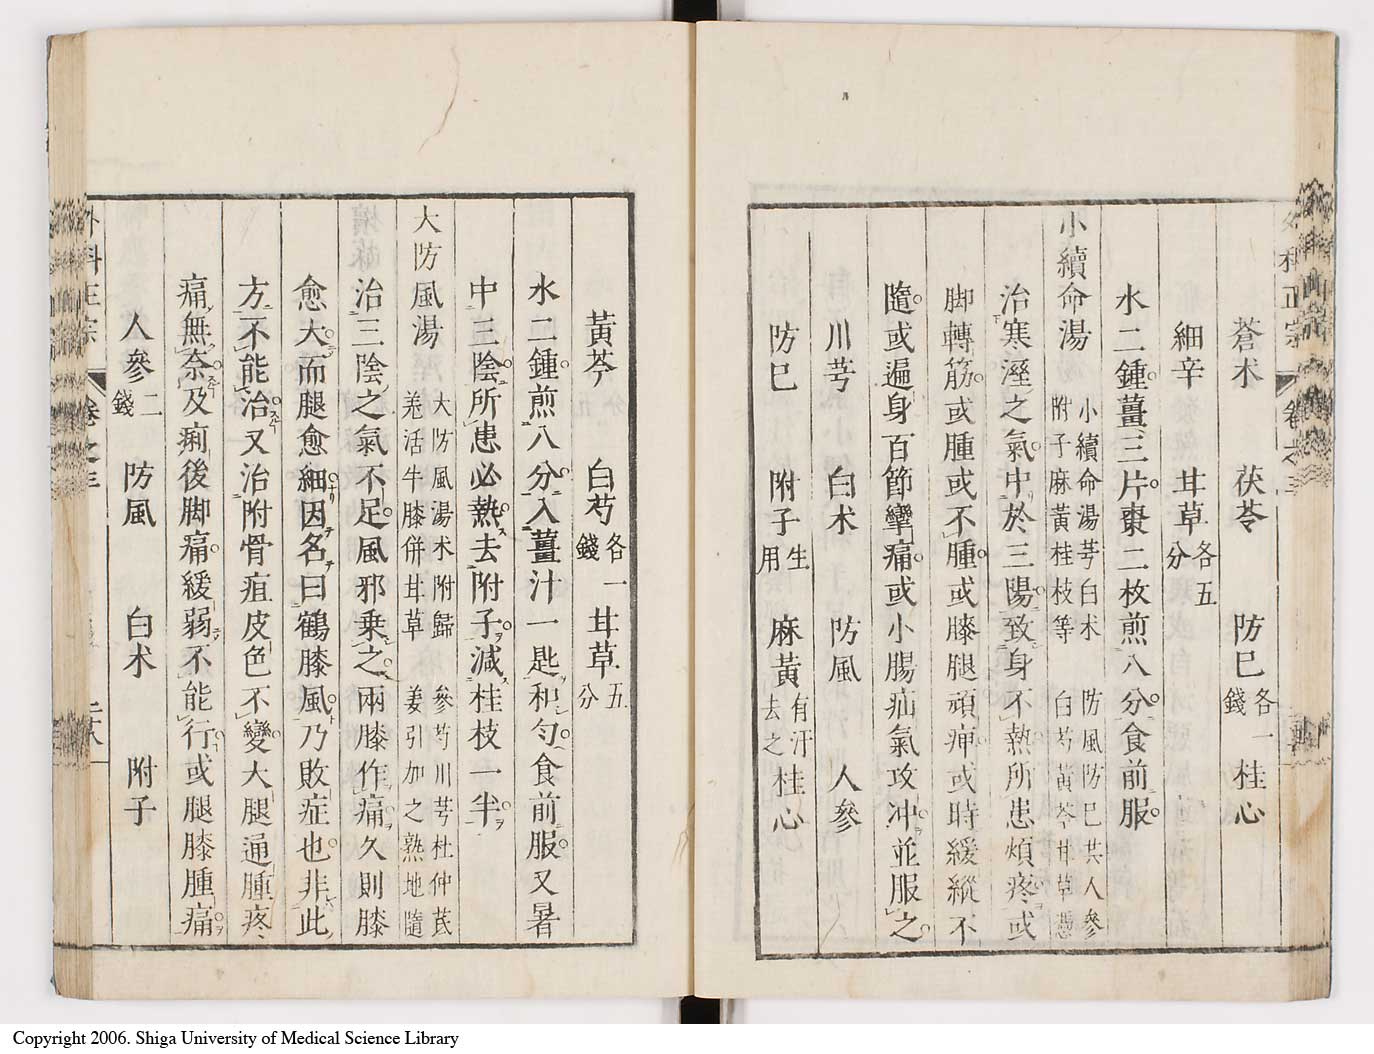 外科正宗 卷之三
蒼朮 茯苓 防巳各一錢 桂心
細辛 甘草各五分
水二鍾薑三片棗二枚煎八分食前服
小續命湯 小續命湯芎白朮 附子麻黄桂枝等 防風防巳共人參 白芍黄芩甘草憑
治寒溼之氣中於三陽致身不熱所患煩疼或
脚轉筋或腫或不腫或膝腿頑痺或時緩縱不
隨或遍身百節攣痛或小腸疝氣攻冲並服之
川芎 白朮 防風 人參
防巳 附子生用 麻黄有汗去之 桂心
黄芩 白芍各一錢 甘草五分
水二鍾煎八分入薑汁一匙和勻食前服又暑
中三陰所患必熱去附子減桂枝一半
大防風湯 大防風湯朮附歸 羌活牛膝併甘草 參芍川芎杜仲茋 姜引加之熟地隨
治三陰之氣不足風邪乗之兩膝作痛久則膝
愈大而腿愈細因名曰鶴膝風乃敗症也非此
方不能治又治附骨疽皮色不變大腿通腫疼
痛無奈及痢後脚痛緩弱不能行或腿膝腫痛
人參二錢 防風 白朮 附子
外科正宗 卷之三
Copyright 2006. Shiga University of Medical Science Library